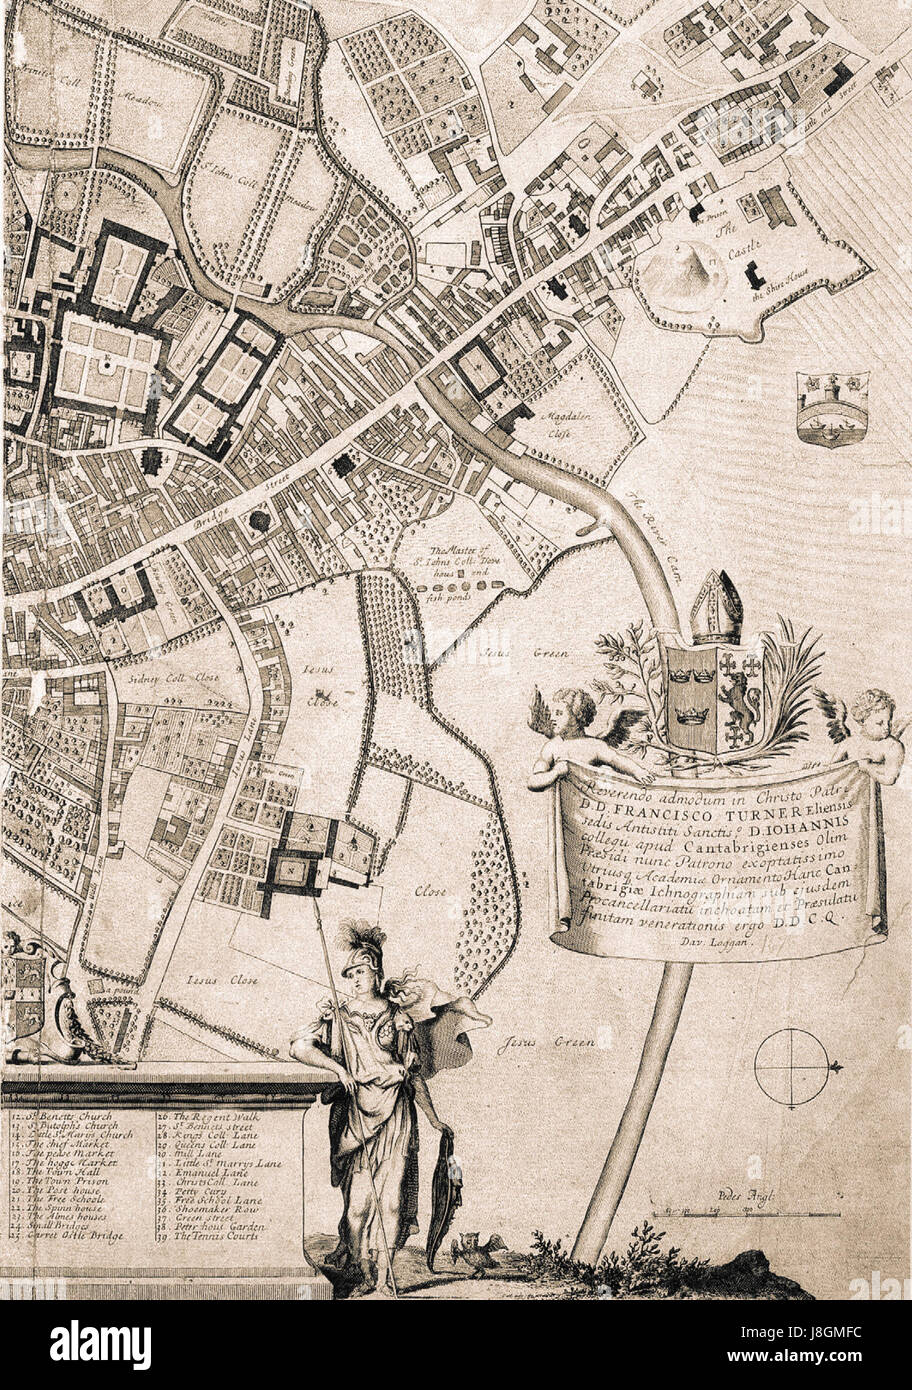 Trinitie Coll
Meadow
Bowling Green
St Iohns Coll
Meadow
Castle end Street
the Prison
The
Castle
the Shire House
Bowling Green
Magdalen
Close
Bridge Street
The River Cam
The Master of
St Iohns Coll: Dove
hous and
fish ponds
Iesus Green
Iesus
Close
Sidney Coll Close
Iesus Lane
Close
Iesus Close
a pound
Jesus Green
Reverendo admodum in Christo Patri
D.D. FRANCISCO TURNER Eliensis
sedis Antistiti Sanctiss: D. IOHANNIS
collegij apud Cantabrigienses Olim
Præsidi nunc Patrono exoptatissimo
Utriusq Academiæ Ornamento Hanc Can
tabrigiæ Ichnographiam sub ejusdem
Procancellariatu inchoatam et Præsulatu
finitam venerationis ergo D.D C.Q.
Dav. Loggan.
12. St Benetts Church
13. St Butolphs Church
14. Little St Marys Church
15. The chief Market
16. The pease Market
17. The hogge Market
18. The Town Hall
19. The Town Prison
20. The Post house
21. The Free Schoole
22. The Spinn house
23. The Almes houses
24. Small Bridges
25. Garret Ostle Bridge
26. The Regent Walk
27. St Bennets street
28. Kings Coll Lane
29. Queens Coll Lane
30. Mill Lane
31. Little St Marrys Lane
32. Emanuel Lane
33. Christs Coll. Lane
34. Petty Cury
35. Free School Lane
36. Shoemaker Row
37. Green street
38. Peter hous Garden
39. The Tennis Courts
Pedes Angl:
alamy
alamy stock photo
J8GMFC
www.alamy.com